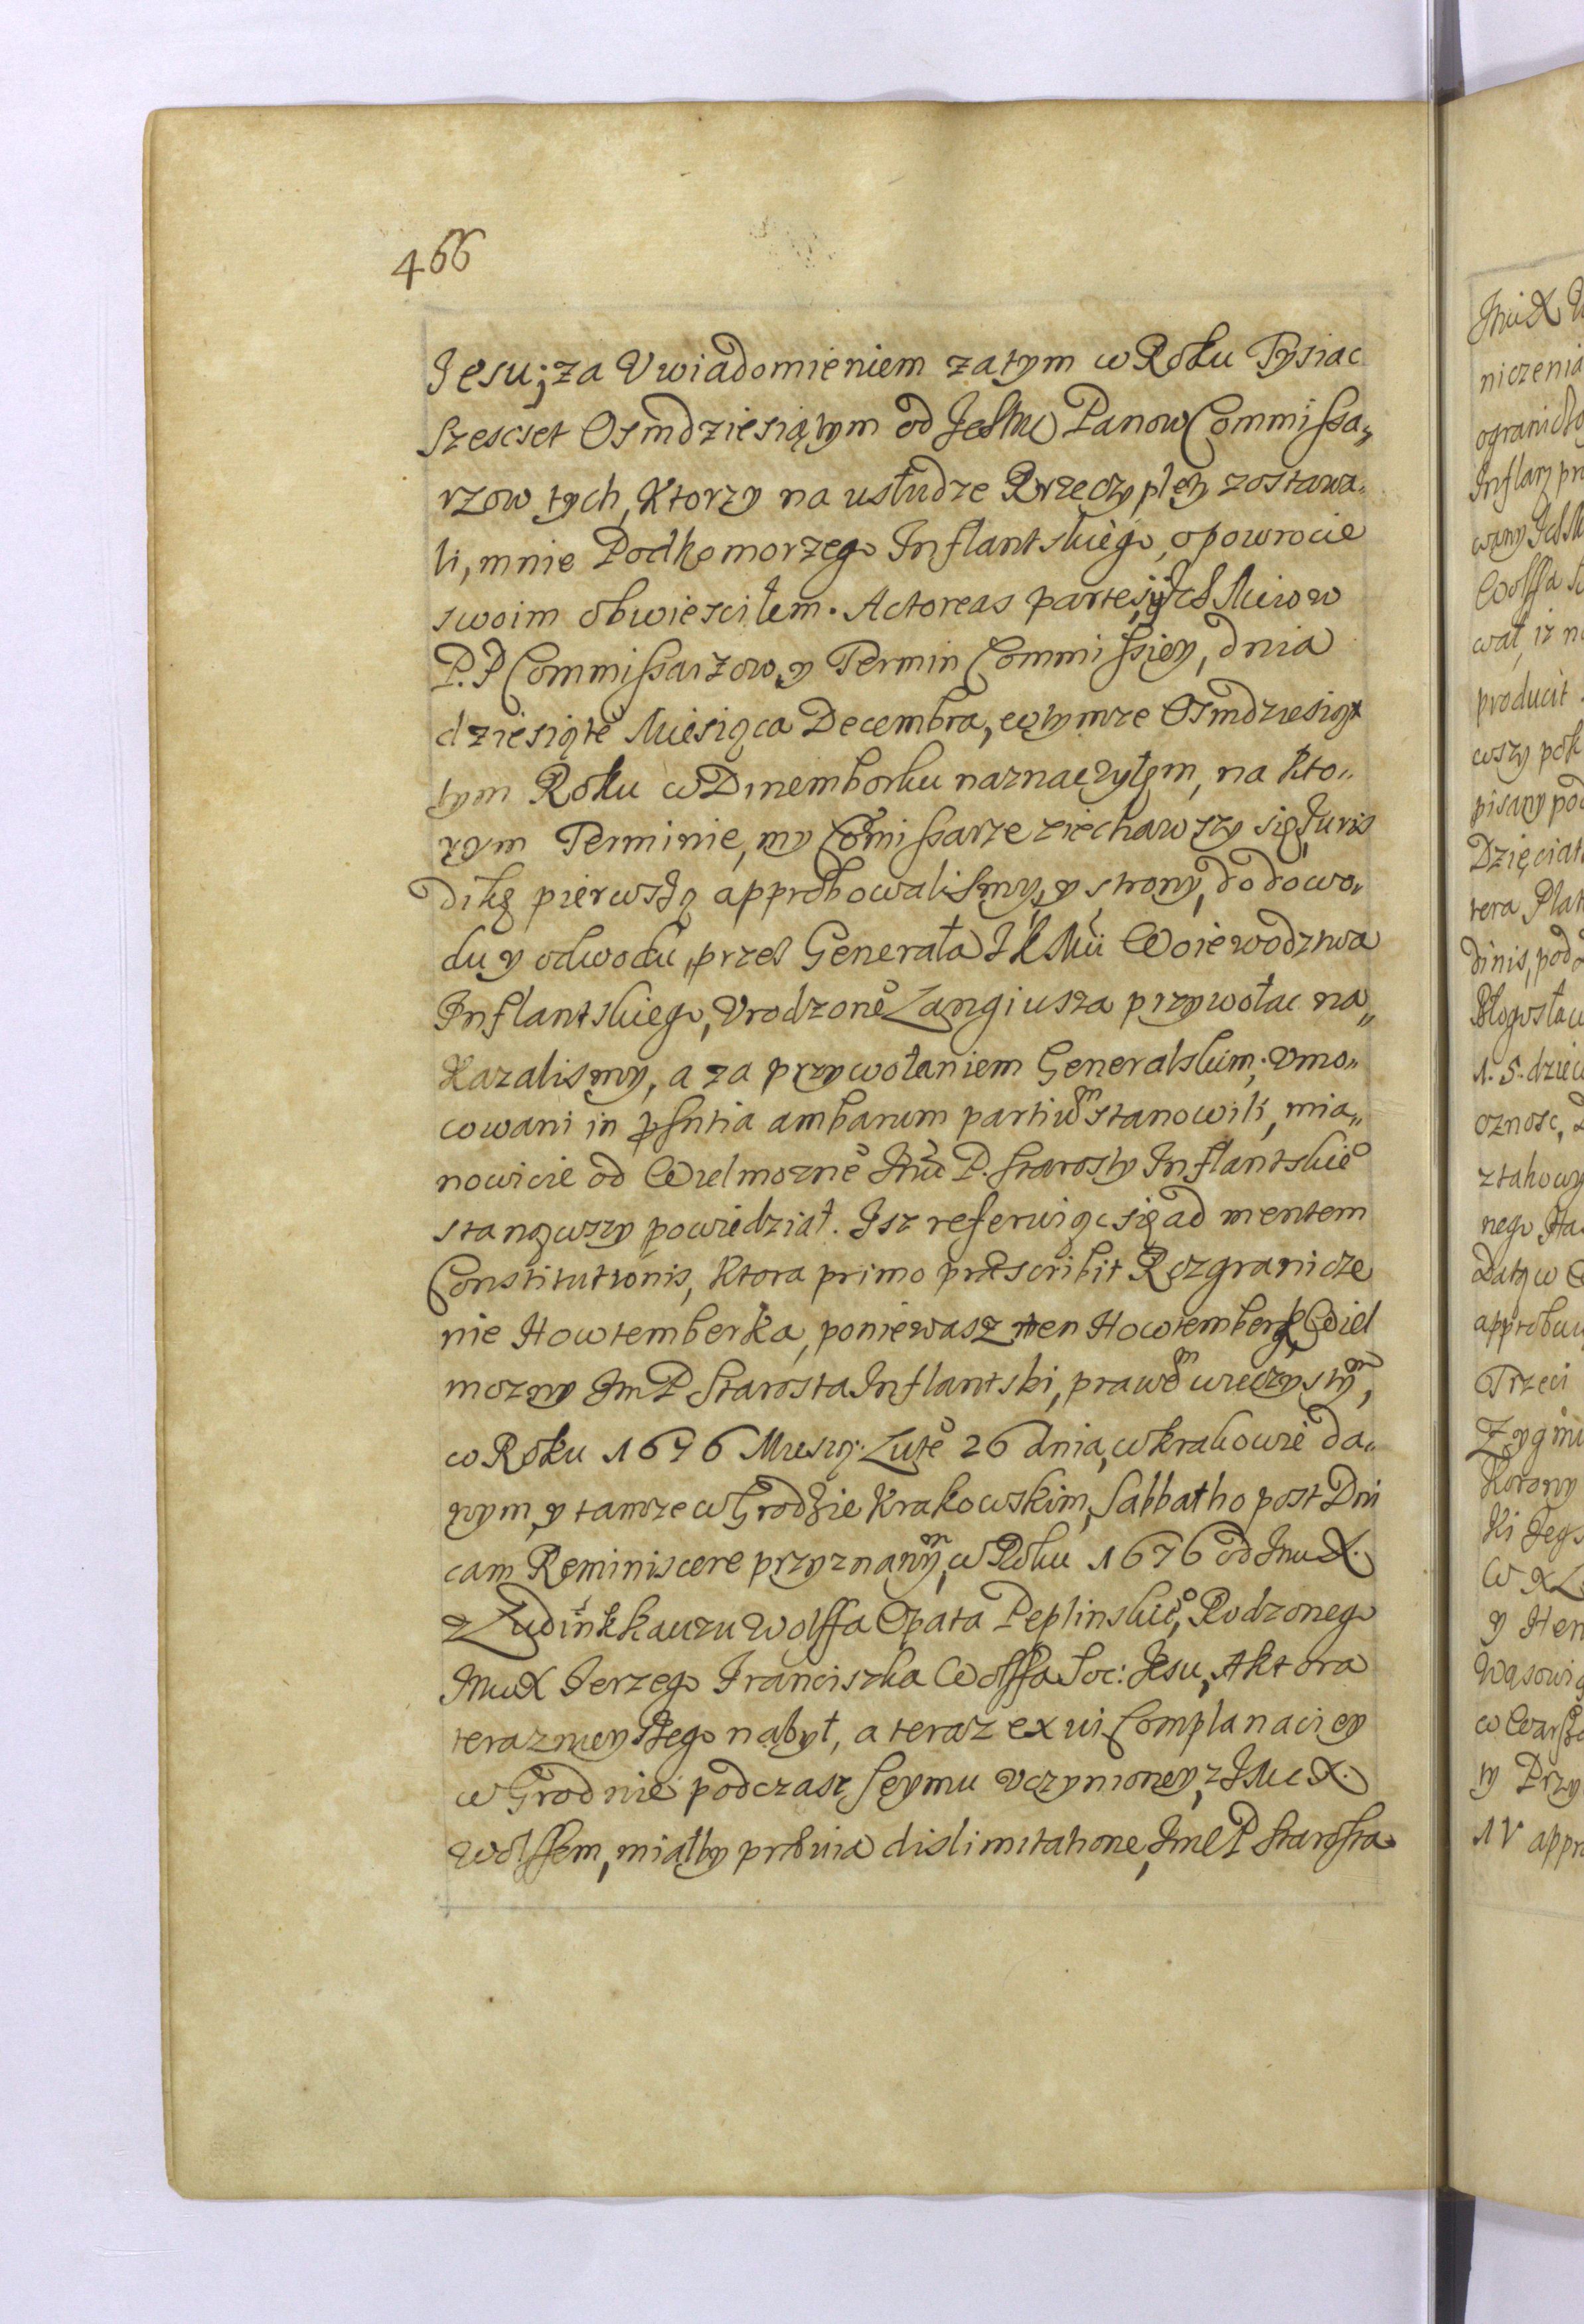 466
Jesu; za Uwiadomieniem zatym w Roku Tysiac
szescset Osmdziesiątym od Panow Commissa„
rzow tych, Ktorzy na usłudze zostawa„
li, mnie Podkomorzego Inflantskiego, o powrocie
swoim obwiescilem. Actoreas partes,
P.P Commissarzow, y Termin Commissiey, dnia
dziesiątė Miesiąca Decembra, w tymze Osmdziesiąt
tym Roku w Dinemborku naznaczyłęm, na Kto„
rym Terminie, my Com̃issarze ziechawszy się Juris
dikę pierwszą approbowalismy, y strony, do dowo„
du y odwodu, przes Generała Woiewodztwa
Inflantskiego, Urodzonė Langiusza przywołac na„
Kazalismy, a za przywołaniem Generalskim, Umo„
cowani in pñtia ambarum partium stanowili, mia„
nowicie od Wielmoznė P. Starosty Inflantskiė
stanąwszy powiedział. Isz referuiąc się ad mentem
Constitutionis, Ktora primo præscribit Rozgranicze
nie Howtemberka, poniewasz ten Howtemberk Wiel
mozny Im P Starosta Inflantski, prawem wieczystym,
w Roku 1676 Miesią: Lutė 26 dnia, w krakowie da„
nym, y tamze w Grodzie Krakowskim, Sabbatho post Dni
cam Reminiscere przyznanym, w Roku 1676 od Imc X.
z Ludinkhauzu Wolffa Opata Peplinskiė, Rodzonego
Imc X Jerzego Franciszka Wolffa Soc: Jesu, Aktora
teraznieyszego nabył, a teraz ex vi Complanaciey
w Grodnie podczasz seymu uczynioney, z Imc X.
Wolffem, miałby prævia dislimitatione, Imc P Starosta